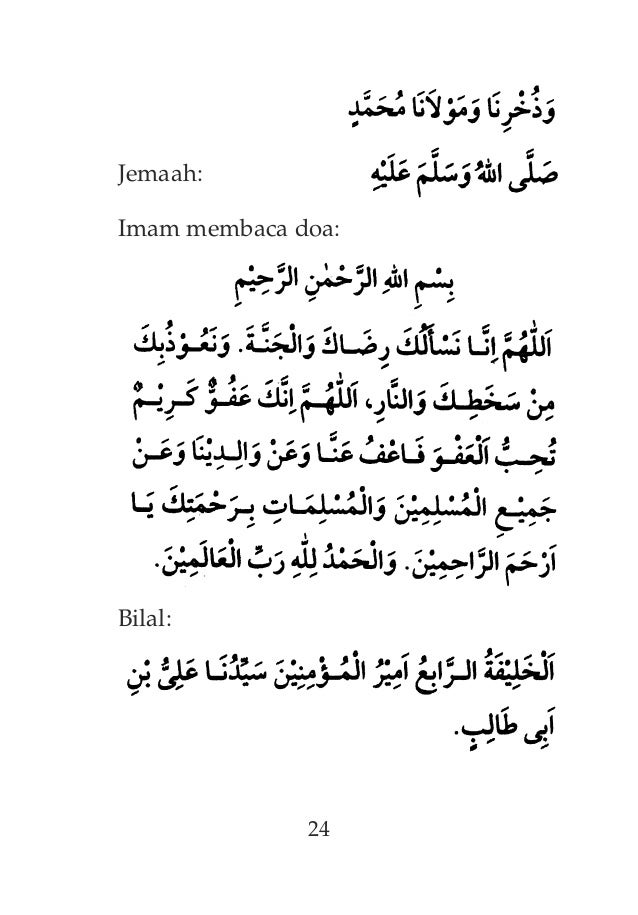 وَذُخْرِنَا وَمَوْلَانَا مُحَمَّدٍ
Jemaah: صَلَّى اللهُ وَسَلَّمَ عَلَيْهِ
Imam membaca doa:
بِسْمِ اللهِ الرَّحْمٰنِ الرَّحِيْمِ
اَللّٰهُمَّ اِنَّا نَسْأَلُكَ رِضَاكَ وَالْجَنَّةَ. وَنَعُوْذُبِكَ
مِنْ سَخَطِكَ وَالنَّارِ، اَللّٰهُمَّ اِنَّكَ عَفُوٌّ كَرِيْمٌ
تُحِبُّ اَلْعَفْوَ فَاعْفُ عَنَّا وَعَنْ وَالِدِيْنَا وَعَنْ
جَمِيْعِ الْمُسْلِمِيْنَ وَالْمُسْلِمَاتِ بِرَحْمَتِكَ يَا
اَرْحَمَ الرَّاحِمِيْنَ. وَالْحَمْدُ لِلّٰهِ رَبِّ الْعَالَمِيْنَ.
Bilal:
اَلْخَلِيْفَةُ الرَّابِعُ اَمِيْرُ الْمُؤْمِنِيْنَ سَيِّدُنَا عَلِىُّ بْنِ
اَبِى طَالِبٍ.
24